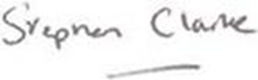 Stephen Clarke